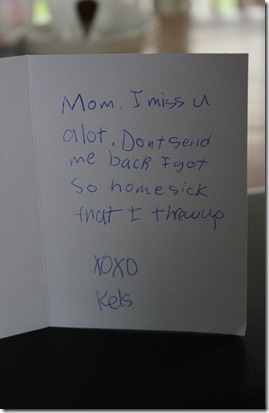 Mom. I miss u
alot. Dont send
me back I got
so homesick
that I threwup
XOXO
Kels